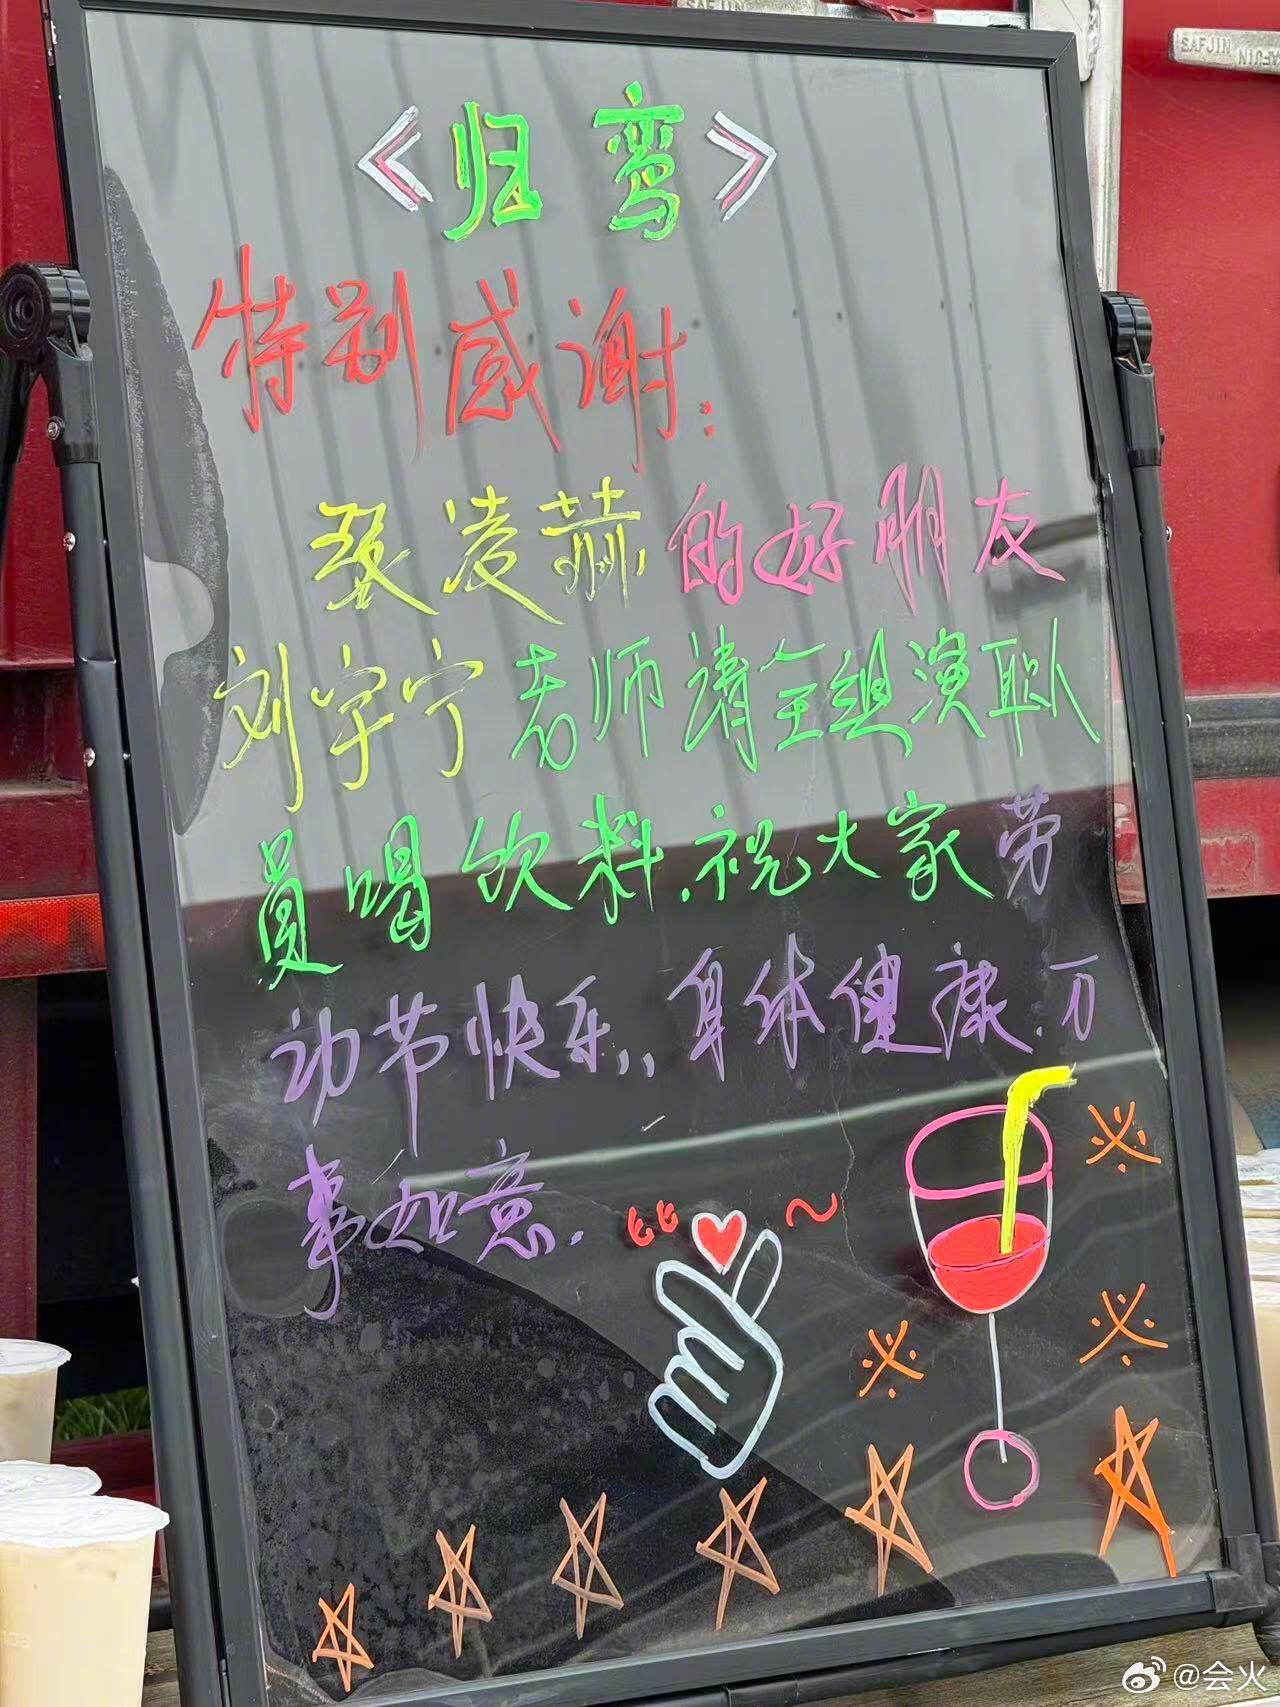 SAFJIN
SAFJIN
《归鸾》
特别感谢:
张凌赫的好朋友
刘宇宁老师请全组演职
员喝饮料.祝大家劳
动节快乐,,身体健康.万
事如意.
@会火